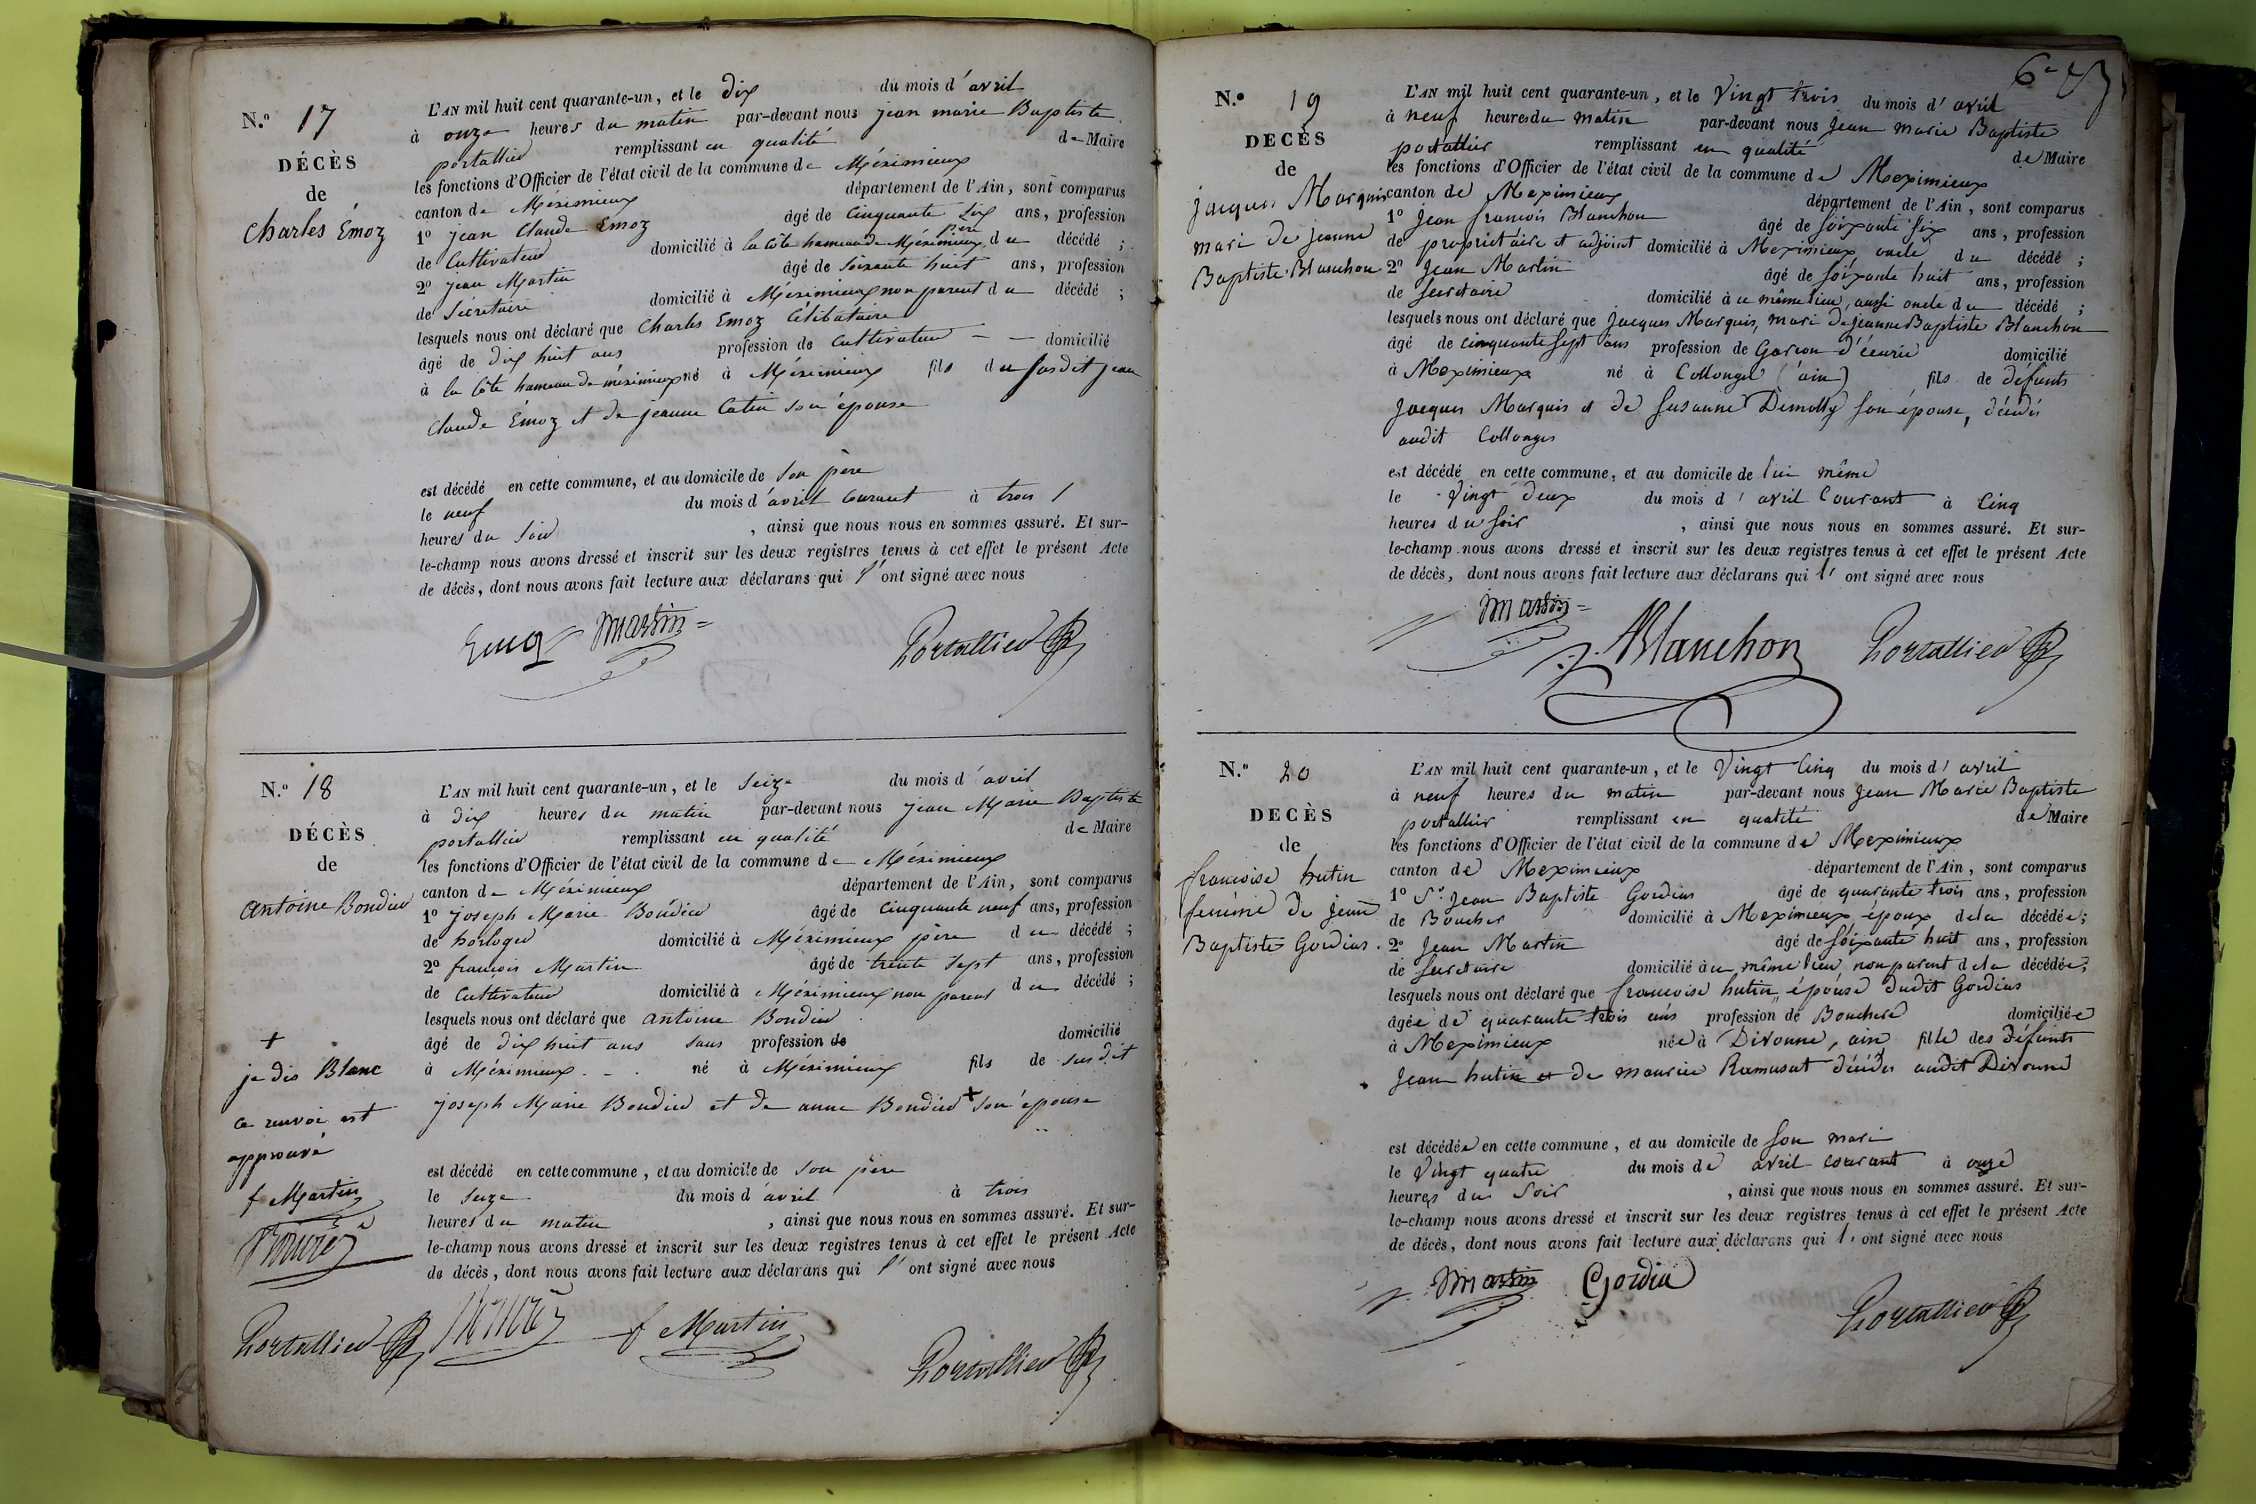 N.º 17
DÉCÈS
de
Charles Émoz
L'AN mil huit cent quarante-un, et le dix du mois d'avril
à onze heures du matin par-devant nous jean marie Baptiste
portallier remplissant en qualité de Maire
les fonctions d'Officier de l'état civil de la commune de Méximieux
canton de Méximieux département de l'Ain, sont comparus
1º jean Claude Émoz âgé de cinquante six ans, profession
de Cultivateur domicilié à la Côte hameau de Méximieux père du décédé ;
2º jean Martin âgé de soixante huit ans, profession
de Sécrétaire domicilié à Méximieux non parent du décédé ;
lesquels nous ont déclaré que Charles Emoz Célibataire
âgé de dix huit ans profession de Cultivateur - - domicilié
à la Côte hameau de méximieux né à Méximieux fils du susdit jean
Claude Émoz et de jeanne Catin son épouse
est décédé en cette commune, et au domicile de son père
le neuf du mois d'avril Courant à trois
heures du soir , ainsi que nous nous en sommes assuré. Et sur-
le-champ nous avons dressé et inscrit sur les deux registres tenus à cet effet le présent Acte
de décès, dont nous avons fait lecture aux déclarans qui l'ont signé avec nous
Emoz Martin Portallier
N.º 18
DÉCÈS
de
Antoine Bondier
L'AN mil huit cent quarante-un, et le seize du mois d'avril
à dix heures du matin par-devant nous jean Marie Baptiste
portallier remplissant en qualité de Maire
les fonctions d'Officier de l'état civil de la commune de Méximieux
canton de Méximieux département de l'Ain, sont comparus
1º joseph Marie Boudier âgé de cinquante neuf ans, profession
de horloger domicilié à Méximieux père du décédé ;
2º françois Martin âgé de trente sept ans, profession
de Cultivateur domicilié à Méximieux non parent du décédé ;
lesquels nous ont déclaré que antoine Bondier
âgé de dix huit ans sans profession de domicilié
à Méximieux - né à Méximieux fils de susdit
joseph Marie Bondier et de anne Bondier + son épouse
+
je dis Blanc
ce renvoi est
approuvé
f Martin
est décédé en cette commune, et au domicile de son père
le seize du mois d'avril à trois
heures du matin , ainsi que nous nous en sommes assuré. Et sur-
le-champ nous avons dressé et inscrit sur les deux registres tenus à cet effet le présent Acte
de décès, dont nous avons fait lecture aux déclarans qui l'ont signé avec nous
Portallier f Martin Portallier
6e
N.º 19
DECÈS
de
jacques Marquis
mari de jeanne
Baptiste Blanchon
L'AN mil huit cent quarante-un, et le Vingt trois du mois d'avril
à neuf heures du matin par-devant nous Jean Marie Baptiste
portallier remplissant en qualité de Maire
les fonctions d'Officier de l'état civil de la commune de Meximieux
canton de Meximieux département de l'Ain, sont comparus
1º Jean francois Blanchon âgé de soixante six ans, profession
de propriétaire et adjoint domicilié à Meximieux oncle du décédé ;
2º Jean Martin âgé de soixante huit ans, profession
de secrétaire domicilié à ce même lieu, aussi oncle du décédé ;
lesquels nous ont déclaré que Jacques Marquis, mari de jeanne Baptiste Blanchon
âgé de cinquante sept ans profession de Garcon d'écurie domicilié
à Meximieux né à Collonges (ain) fils de défunts
Jacques Marquis et de Susanne Demolly son épouse, décédés
audit Collonges
est décédé en cette commune, et au domicile de lui même
le Vingt deux du mois d'avril Courant à Cinq
heures du soir , ainsi que nous nous en sommes assuré. Et sur-
le-champ nous avons dressé et inscrit sur les deux registres tenus à cet effet le présent Acte
de décès, dont nous avons fait lecture aux déclarans qui l'ont signé avec nous
Martin
Blanchon Portallier
N.º 20
DECÈS
de
francoise hutin
femme de jean
Baptiste Gordias
L'AN mil huit cent quarante-un, et le Vingt Cinq du mois d'avril
à neuf heures du matin par-devant nous Jean Marie Baptiste
portallier remplissant en qualité de Maire
les fonctions d'Officier de l'état civil de la commune de Meximieux
canton de Meximieux département de l'Ain, sont comparus
1º Sr Jean Baptiste Gordias âgé de quarante trois ans, profession
de Boucher domicilié à Meximieux époux dela décédée ;
2º Jean Martin âgé de soixante huit ans, profession
de secrétaire domicilié à ce même lieu, non parent dela décédée ;
lesquels nous ont déclaré que francoise hutin, épouse dudit Gordias
âgée de quarante trois ans profession de Bouchere domiciliée
à Meximieux née à Divonne, ain fille des défunts
Jean hutin et de maurice Ramusat décédés audit Divonne
est décédée en cette commune, et au domicile de son mari
le Vingt quatre du mois de avril courant à onze
heures du soir , ainsi que nous nous en sommes assuré. Et sur-
le-champ nous avons dressé et inscrit sur les deux registres tenus à cet effet le présent Acte
de décès, dont nous avons fait lecture aux déclarans qui l'ont signé avec nous
Martin Gordia Portallier